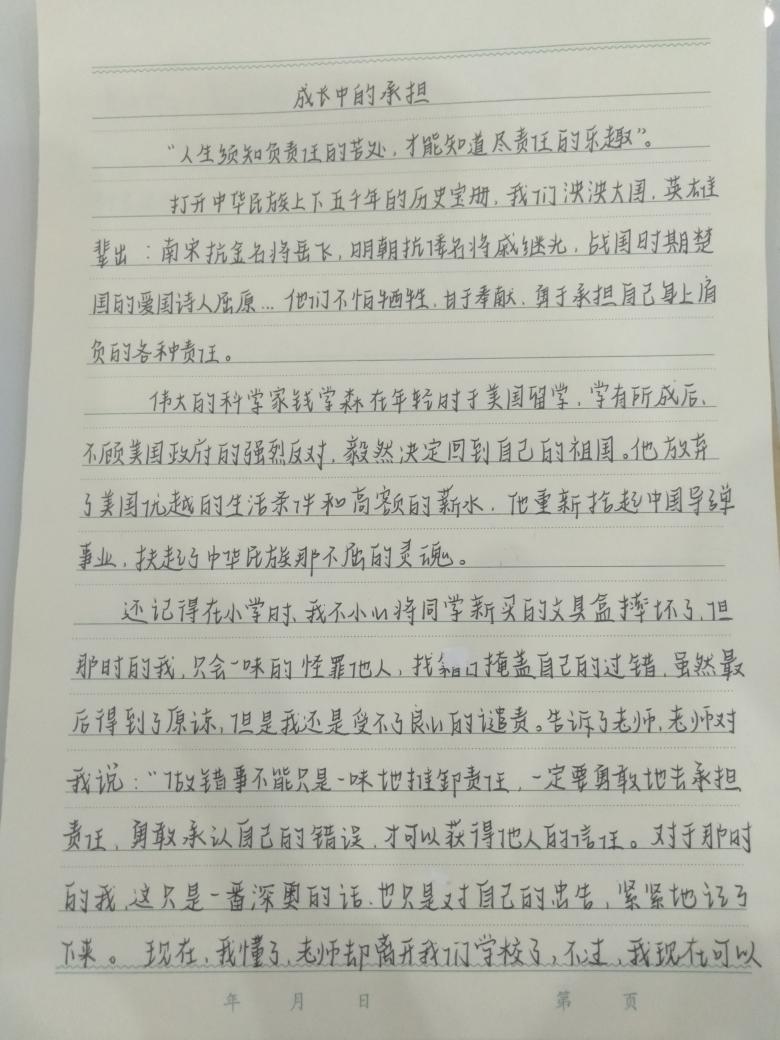 成长中的承担
“人生须知负责任的苦处，才能知道尽责任的乐趣”。
打开中华民族上下五千年的历史宝册，我们泱泱大国，英雄
辈出：南宋抗金名将岳飞，明朝抗倭名将戚继光，战国时期楚
国的爱国诗人屈原...他们不怕牺牲，甘于奉献，勇于承担自己身上肩
负的各种责任。
伟大的科学家钱学森在年轻时于美国留学，学有所成后、
不顾美国政府的强烈反对，毅然决定回到自己的祖国。他放弃
了美国优越的生活条件和高额的薪水，他重新拾起中国导弹
事业，扶起了中华民族那不屈的灵魂。
还记得在小学时、我不小心将同学新买的文具盒摔坏了，但
那时的我，只会一味的怪罪他人，找掩盖自己的过错，虽然最
后得到了原谅，但是我还是受不了良心的谴责。告诉了老师，老师对
我说：“做错事不能只是一味地推卸责任，一定要勇敢地去承担
责任，勇敢承认自己的错误，才可以获得他人的信任。对于那时
的我，这只是一番深奥的话，也只是对自己的忠告，紧紧地记了
下来。现在，我懂了，老师却离开我们学校了，不过，我现在可以
年 月 日 第 页